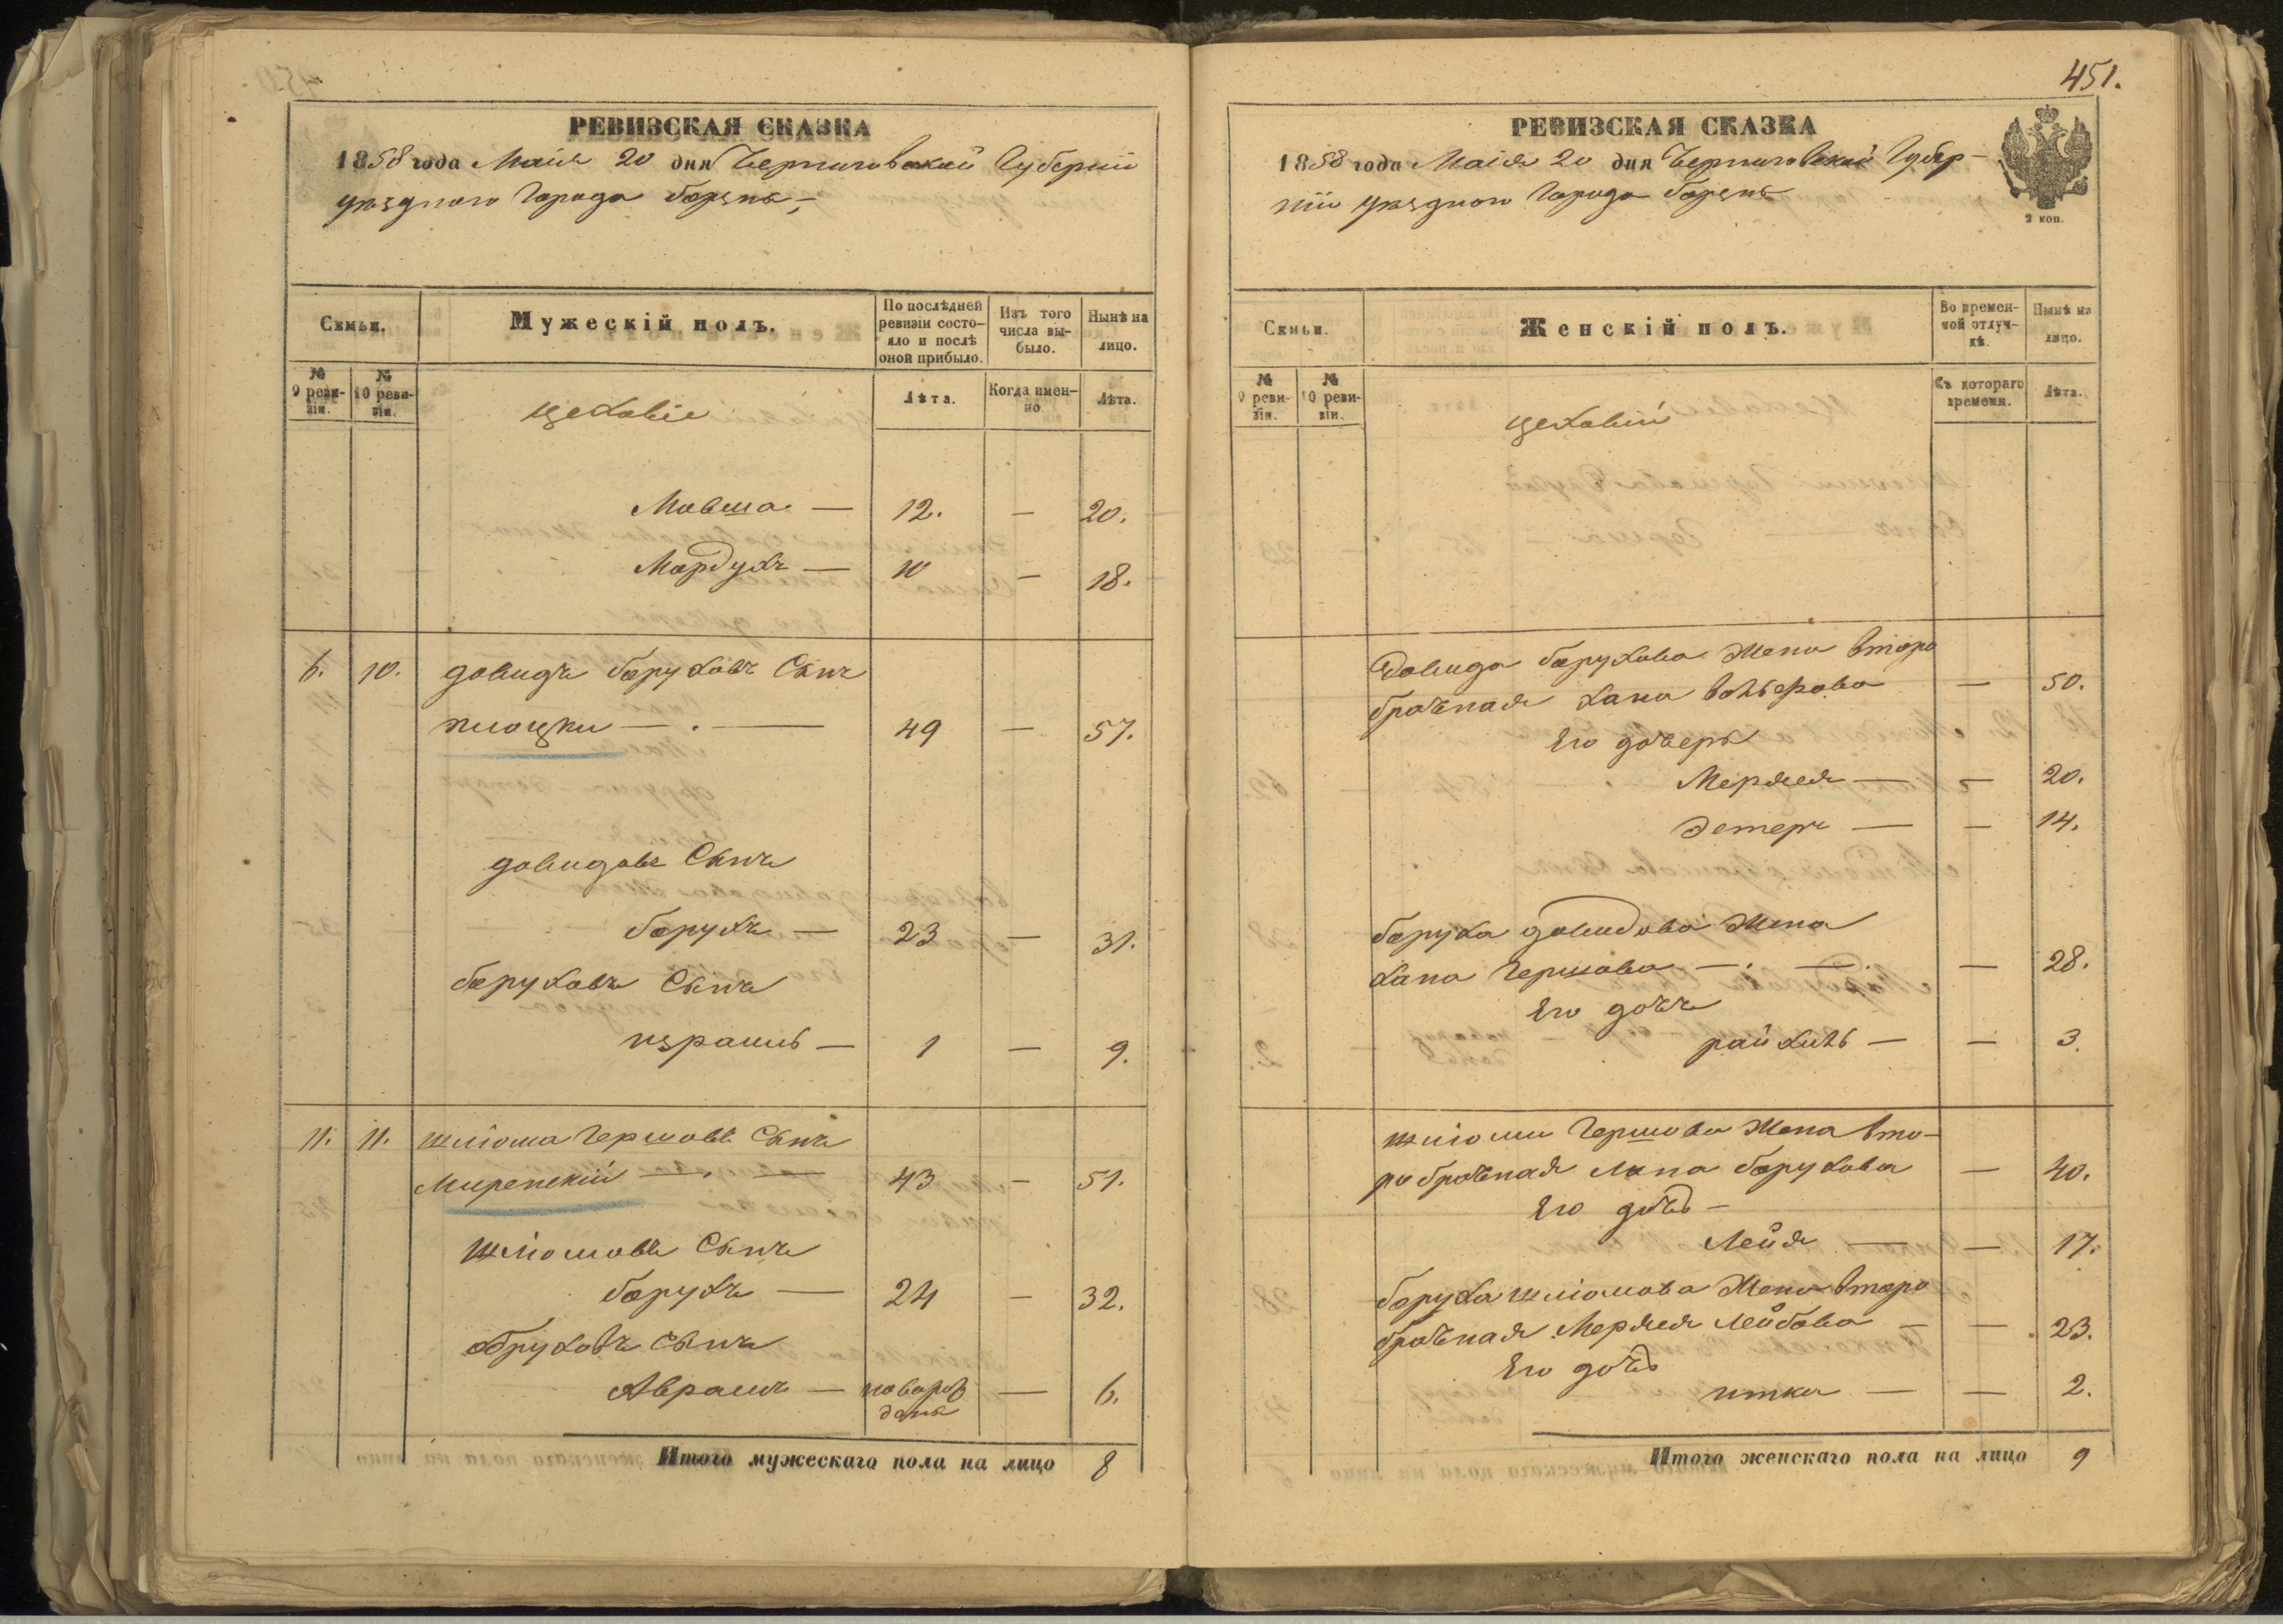 РЕВИЗСКАЯ СКАЗКА
1858 года Маія 20 дня Черниговской Губерніи
уѣзднаго Города Борзны
Семьи.
Мужескій полъ.
По послѣдней ревизіи состояло и послѣ оной прибыло.
Изъ того числа выбыло.
Нынѣ на лицо.
№ 9 ревизіи.
№ 10 ревизіи.
цеховіе
Лѣта.
Когда именно
Лѣта.
Мовша — 12. — 20.
Мордухъ — 10 — 18.
6. 10. Довидъ Боруховъ Сынъ
49 — 57.
Довидовъ Сынъ
Борухъ — 23 — 31.
Боруховъ Сынъ
Израиль — 1 — 9.
11. 11. Шліома Гершовъ Сынъ
Миренскій — 43 — 51.
Шліомовъ Сынъ
Борухъ — 24 — 32.
Обруховъ Сынъ
Авраамъ — новорож — 6.
денъ
Итого мужескаго пола на лицо 8
451.
РЕВИЗСКАЯ СКАЗКА
1858 года Маія 20 дня Черниговской Губер-
ніи уѣзднаго Города Борзны
2 коп.
Семьи.
Женскій полъ.
Во временной отлучкѣ.
Нынѣ на лицо.
№ 9 ревизіи.
№ 10 ревизіи.
цеховій
Съ котораго времени.
Лѣта.
Довида Борухова Жена второ
брачная Хана Вольфова — 50.
Его дочери
Меряся — — 20.
Эстеръ — — 14.
Боруха Довидова Жена
Хана Гершова — — 28.
Его дочь
Райхиль — — 3.
Шліоми Гершова Жена вто-
ро брачная Хана Борухова — 40.
Его дочь —
Лейя — — 17.
Боруха Шліомова Жена второ
брачная Меряся Лейбова — — 23.
Его дочь
Итка — — 2.
Итого женскаго пола на лицо 9